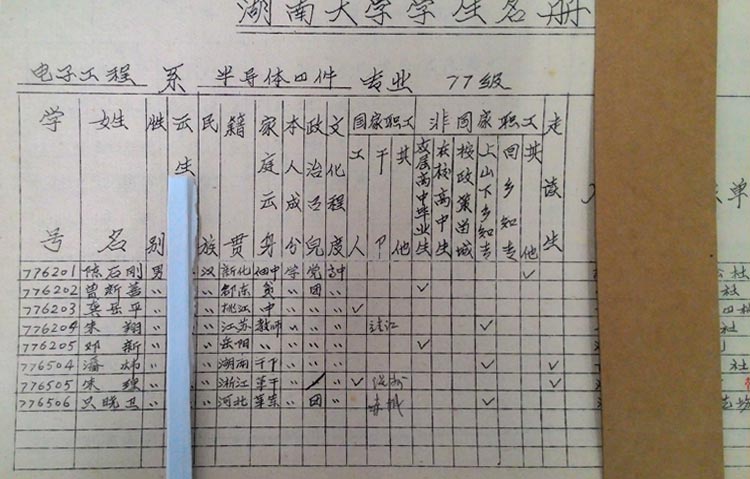 湖南大学学生名册
电子工程 系 半导体四件 专业 77级
学号 姓名 性别 出生 民族 籍贯 家庭出身 本人成分 政治面貌 文化程度 国家职工 工人 干部 其他 非国家职工 应届高中毕业生 在校高中生 按政策留城 上山下乡知青 回乡知青 其他 走读生
776201 陈石刚 男 汉 新化 佃中 学 党 高中 ✓
776202 曾新善 〃 〃 邵东 贫 〃 团 〃 ✓
776203 龚岳平 〃 〃 桃江 中 〃 〃 〃 ✓
776204 朱翔 〃 〃 江苏 教师 〃 〃 〃 ✓
776205 邓新 〃 〃 岳阳 〃 〃 〃 〃 ✓
776504 潘炜 〃 〃 湖南 干部 〃 〃 〃 ✓ ✓
776505 朱理 〃 〃 浙江 革干 〃 〃 ✓ ✓
776506 吴晓卫 〃 〃 河北 革军 〃 团 〃 ✓